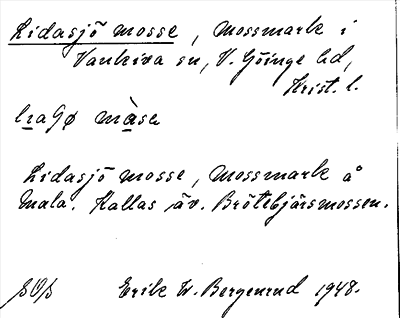 Lidasjö mosse, Mossmark i
Vankiva sn, V. Göinge hd,
Krist. l.
mòsa
Lidasjö mosse, Mossmark å
Mala. Kallas äv. Brötebjärsmossen.
Erik W. Bergenrud 1948.